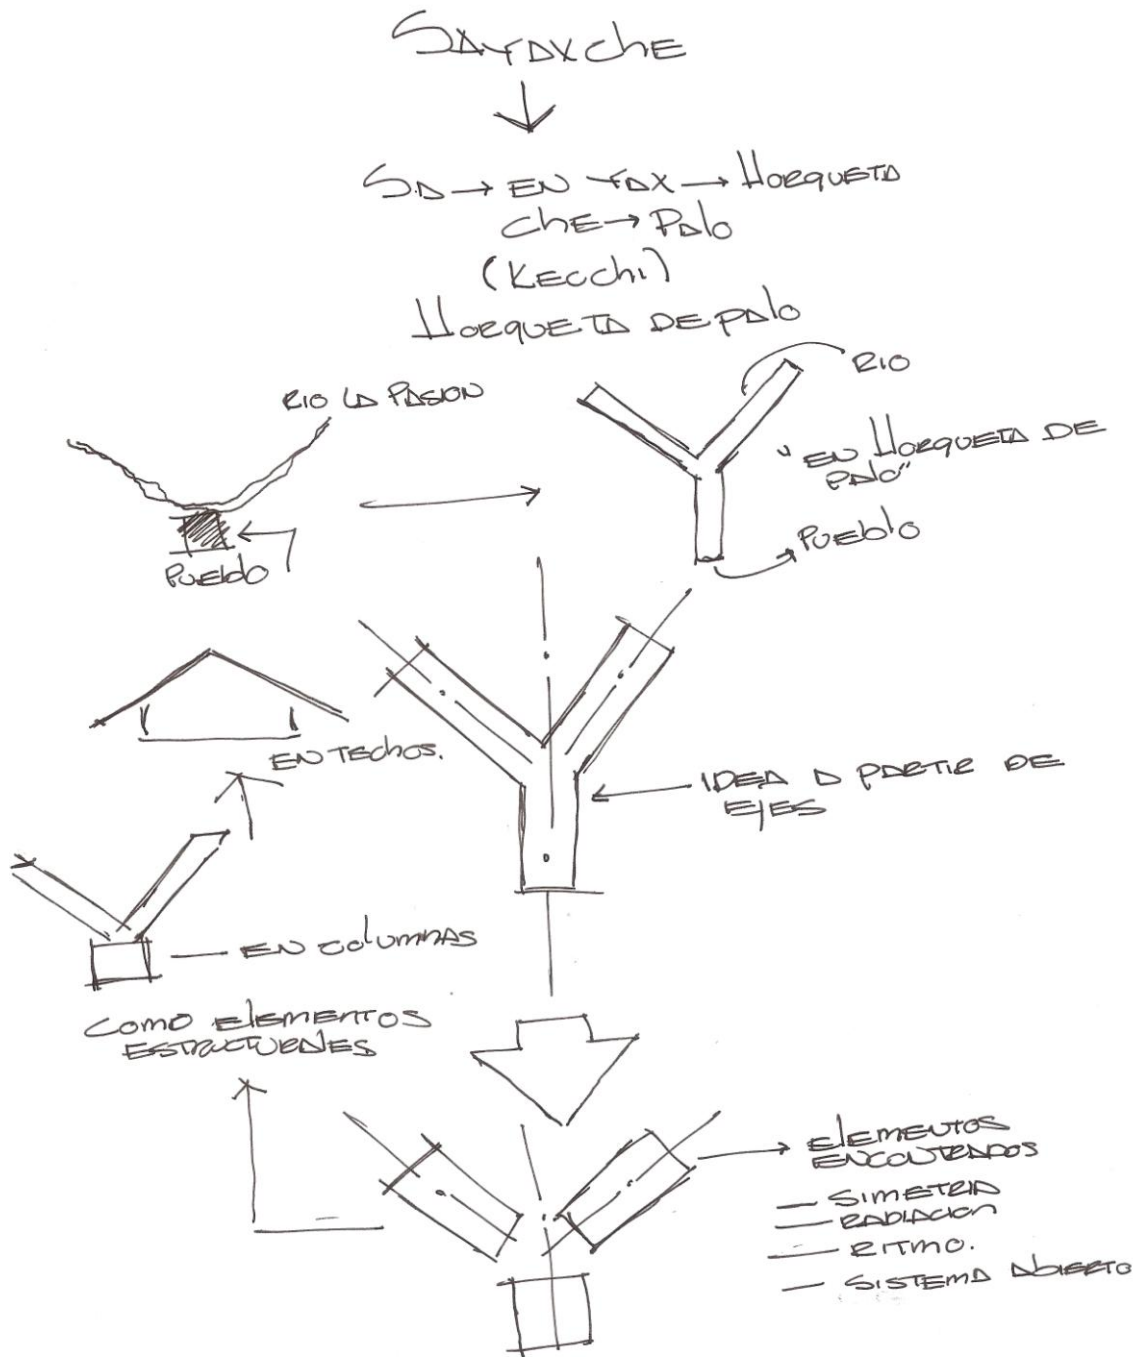 SAYAXCHE
SA → EN YAX → HORQUETA
CHE → PALO
(KECCHI)
HORQUETA DE PALO
RIO LA PASION
RIO
"EN HORQUETA DE
PALO"
PUEBLO
PUEBLO
EN TECHOS.
IDEA A PARTIR DE
EJES
EN COLUMNAS
COMO ELEMENTOS
ESTRUCTURALES
ELEMENTOS
ENCONTRADOS
— SIMETRIA
— RADIACION
— RITMO.
— SISTEMA ABIERTO